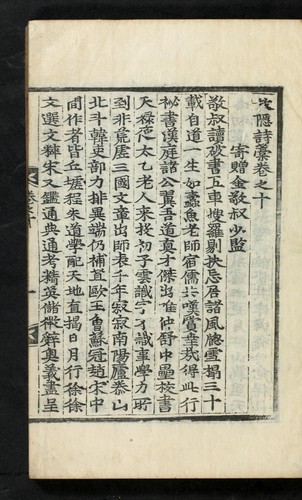 隱詩藁卷之十
寄贈金敬叔少監
敬叔讀破書五車搜羅剔抉忘居諸風聽雲搨三十
載自道一生如蠹魚老師宿儒共嘆賞幸哉得此行
祕書漢庭諸公冀吾道眞才傑出唯仲舒中壘校書
天祿夜太乙老人來我初子雲識字才識事學力所
到非竟虛三國文章出師表千年寂寂南陽廬泰山
北斗韓吏部力排異端仍補苴歐王曾蘇冠趙宋中
間作者皆丘墟程朱道學配天地直揭日月行徐徐
文選文粹宋文鑑通典通考精英儲微辭奧義盡呈